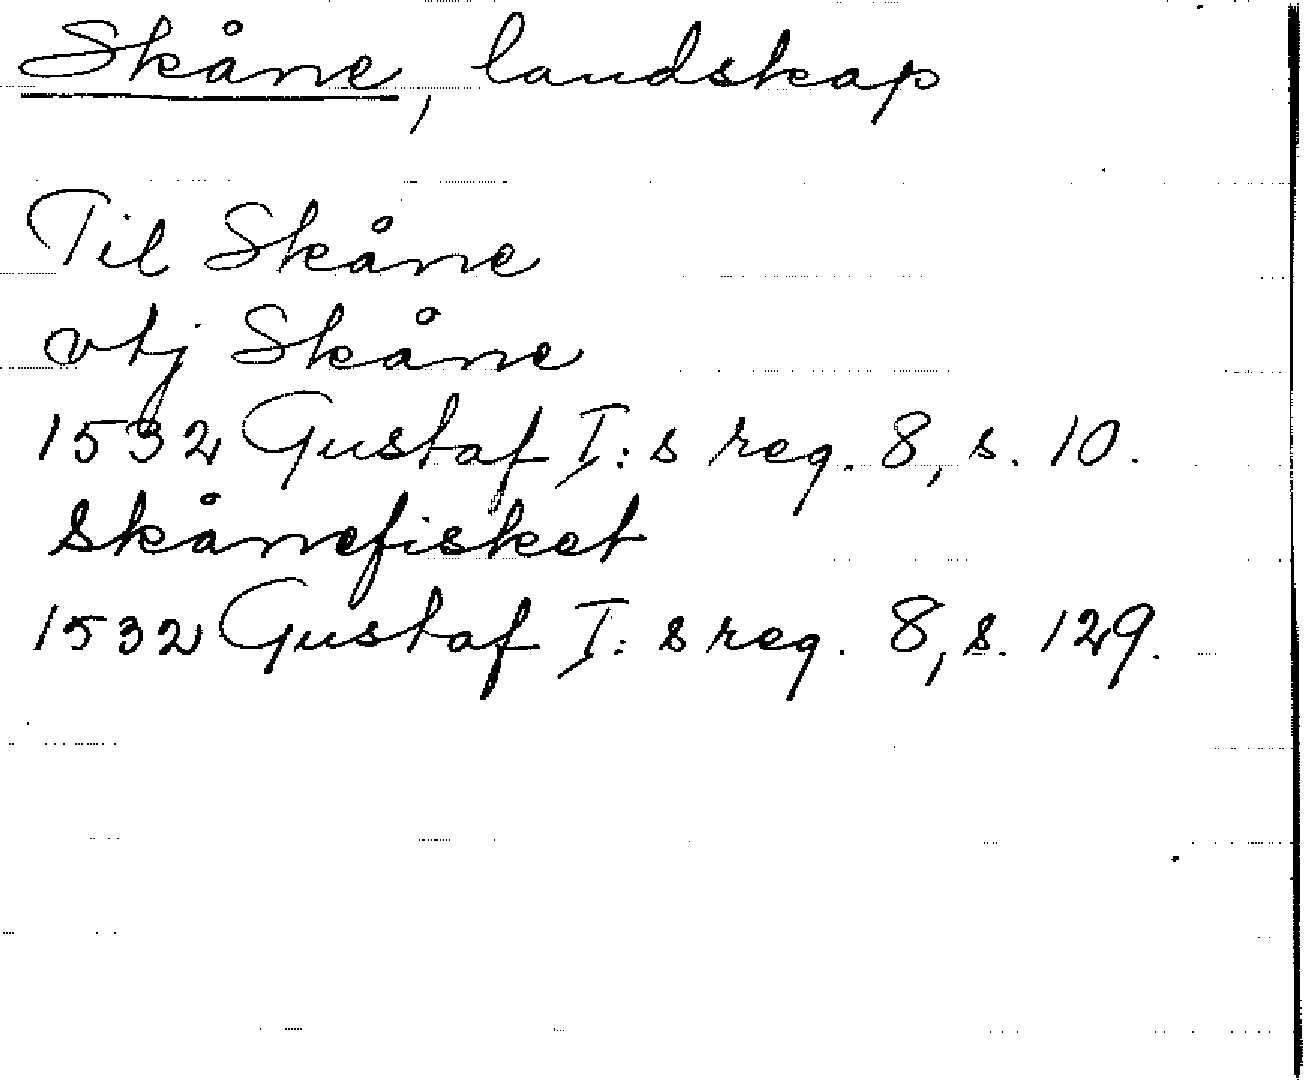 Skåne, landskap
Til Skåne
vtj Skåne
1532 Gustaf I:s reg. 8, s. 10.
Skånefisket
1532 Gustaf I:s reg. 8, s. 129.